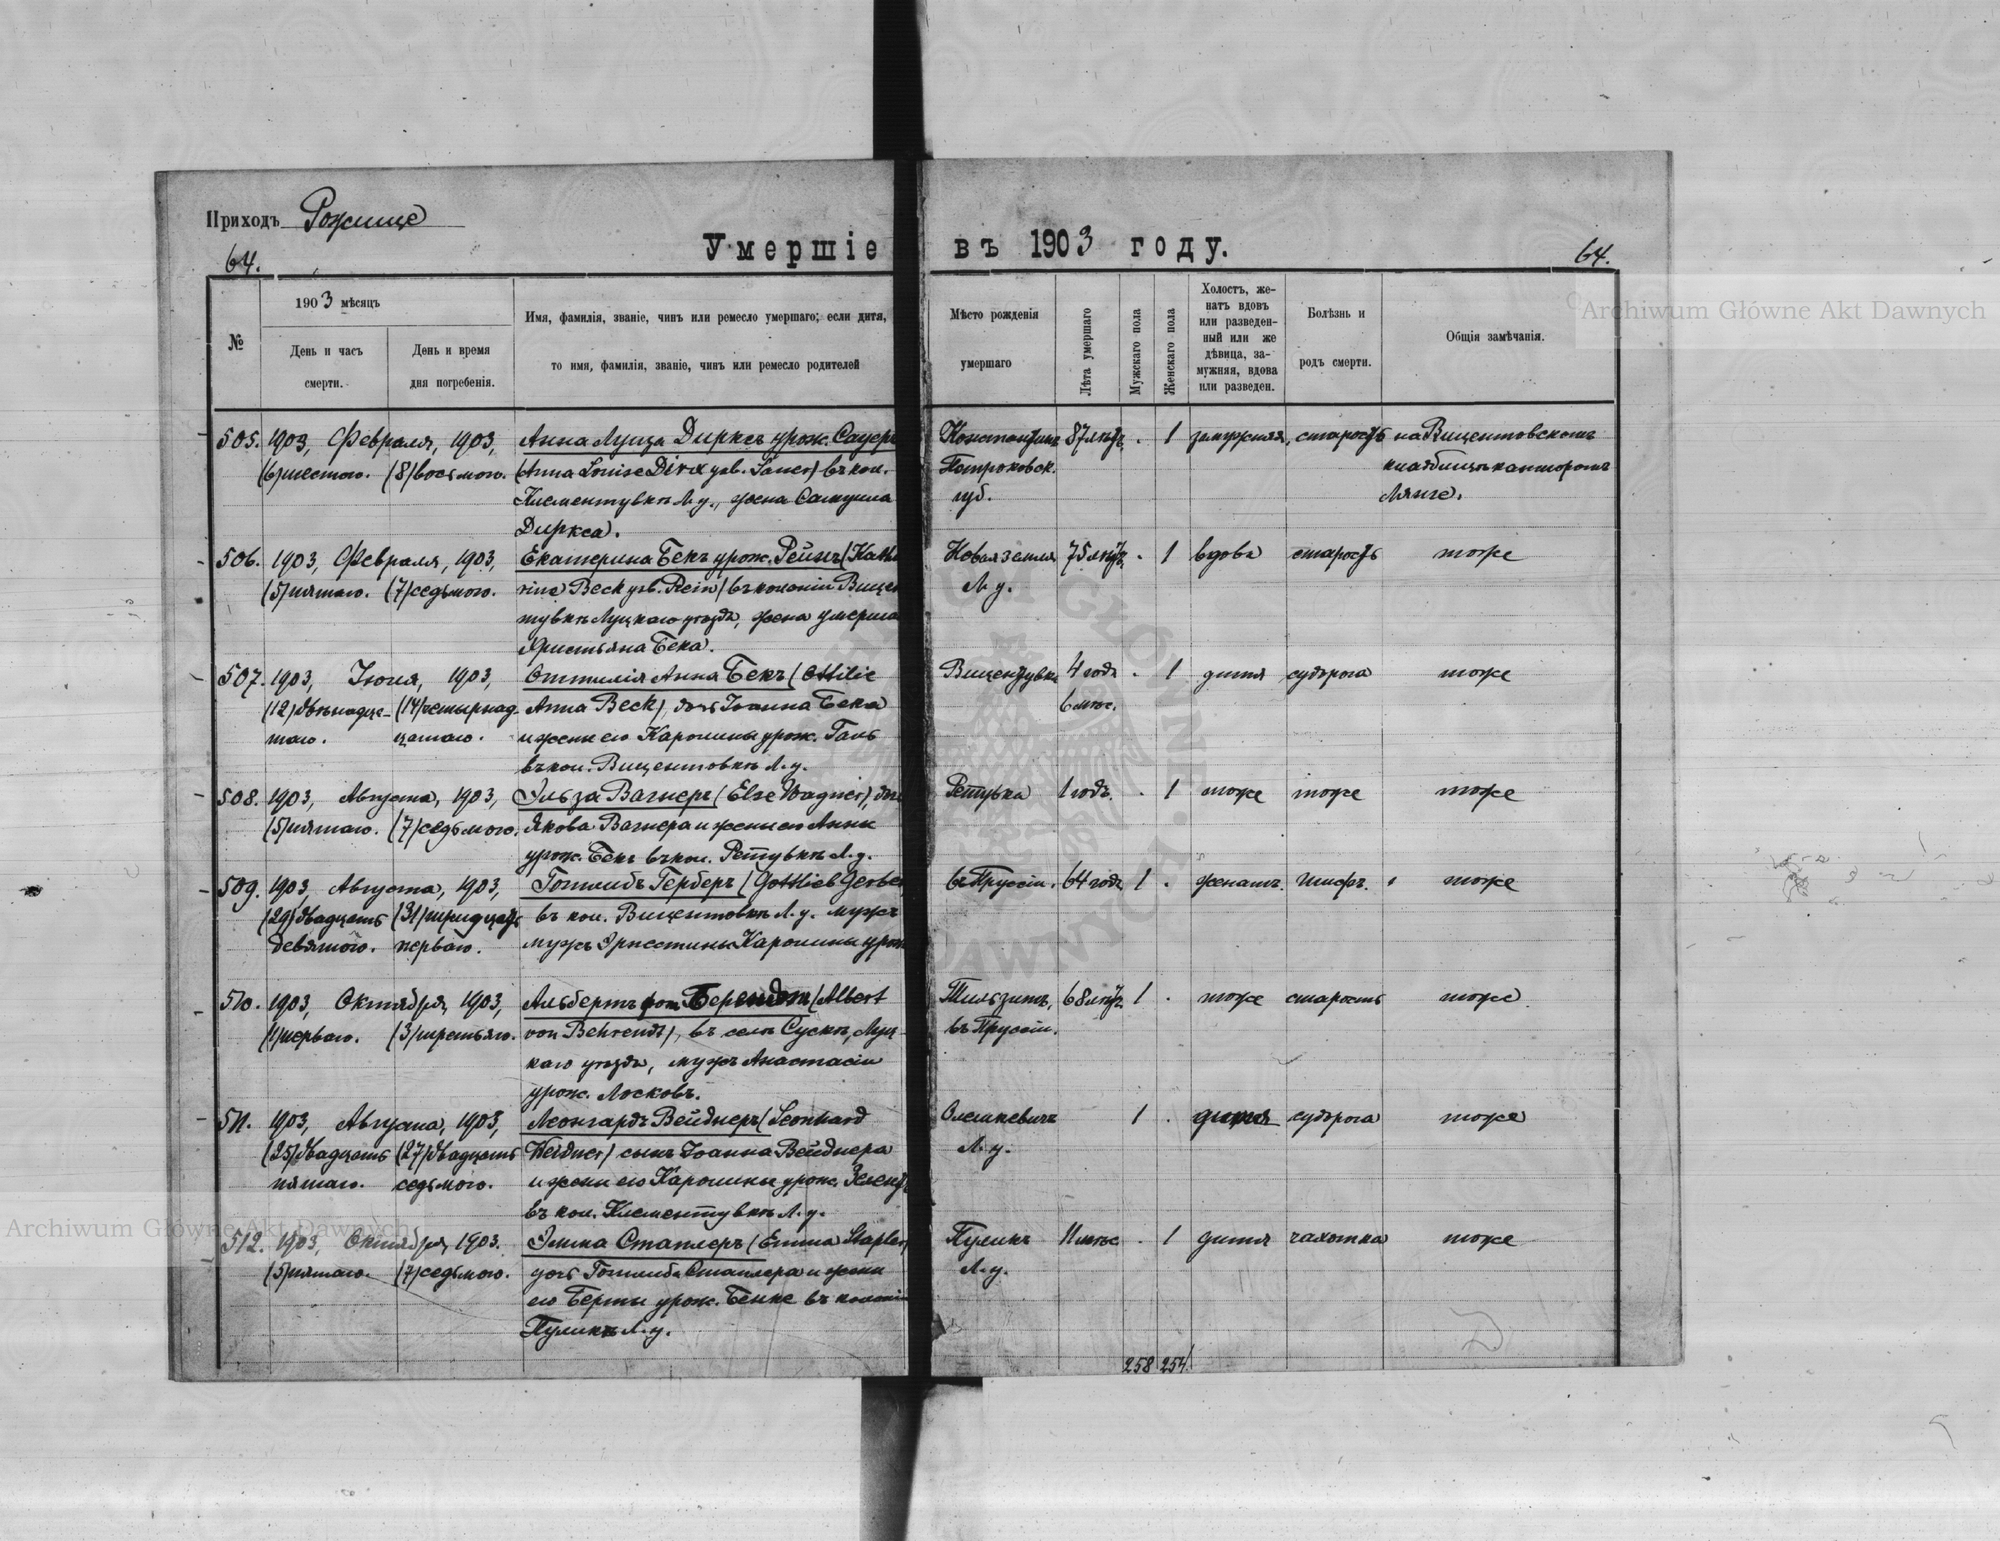 Приходъ Рожище
Умершіе въ 1903 году.
64.
64.
№
1903 мѣсяцъ
День и часъ смерти.
День и время дня погребенія.
Имя, фамилія, званіе, чинъ или ремесло умершаго; если дитя,
то имя, фамилія, званіе, чинъ или ремесло родителей
Мѣсто рожденія
умершаго
Лѣта умершаго
Мужскаго пола
Женскаго пола
Холостъ, же-
натъ вдовъ
или разведен-
ный или же
дѣвица, за-
мужняя, вдова
или разведен.
Болѣзнь и
родъ смерти.
Общія замѣчанія.
Archiwum Główne Akt Dawnych
505. 1903, Февраля, 1903, Анна Луиза Дирксъ урож. Сауеръ Константин. 87 лѣтъ . 1 замужняя, старость на Вицентовскомъ
(6) шестого. (8) восьмого. (Anna Louise Dirx geb. Sauer) въ кол. Петроковск. кладбищѣ канторомъ
Клементувкѣ Л. у., жена Самуила губ. Лянге.
Диркса.
506. 1903, Февраля, 1903, Екатерина Бекъ урож. Рейнъ (Katha Новая земля 75 лѣтъ . 1 вдова старость тоже
(5) пятаго. (7) седьмого. rine Beck geb. Rein) въ колоніи Вицен Л. у.
тувкѣ Луцкаго уѣзда, жена умерша
Христьяна Бека.
507. 1903, Іюня, 1903, Оттилія Анна Бекъ (Ottilie Вицентувка 4 года . 1 дитя судорога тоже
(12) двѣнадца- (14) четырнад- Anna Beck), дочь Іоанна Бека 6 мѣс.
таго. цатаго. и жены его Каролины урож. Галь
въ кол. Вицентовкѣ Л. у.
508. 1903, Августа, 1903, Эльза Вагнеръ (Else Wagner), дочь Репувка 1 годъ. . 1 тоже тоже тоже
(5) пятаго. (7) седьмого. Якова Вагнера и жены его Анны
урож. Бекъ въ кол. Репувкѣ Л. у.
509. 1903, Августа, 1903, Готлибъ Герберъ (Gottlieb Gerber въ Пруссіи. 64 года 1 . женатъ. тифъ. тоже
(29) двадцать (31) тридцать въ кол. Вицентовкѣ Л. у. мужъ
девятого. перваго. мужъ Эрнестины Каролины урож
510. 1903, Октября, 1903, Альбертъ фон Берендтъ (Albert Тильзитъ, 68 лѣтъ 1 . тоже старость тоже
(1) перваго. (3) третьяго. von Behrendt), въ селѣ Сускѣ, Луц- въ Пруссіи.
каго уѣзда, мужъ Анастасіи
урож. Лосковъ.
511. 1903, Августа, 1903, Леонгардъ Вейднеръ (Leonhard Олешкевичъ 1 . дитя судорога тоже
(25) двадцать (27) двадцать Weidner) сынъ Іоанна Вейднера Л. у.
пятаго. седьмого. и жены его Каролины урож.
въ кол. Клементувкѣ Л. у.
512. 1903, Октября, 1903. Эмма Стаплеръ (Emma Stapler) Пулинъ 11 мѣс . 1 дитя чахотка тоже
(5) пятаго. (7) седьмого. дочь Готлиба Стаплера и жены Л. у.
его Берты урож. Бенке въ колоніи
Пулинъ Л. у.
258 254.
Archiwum Główne Akt Dawnych